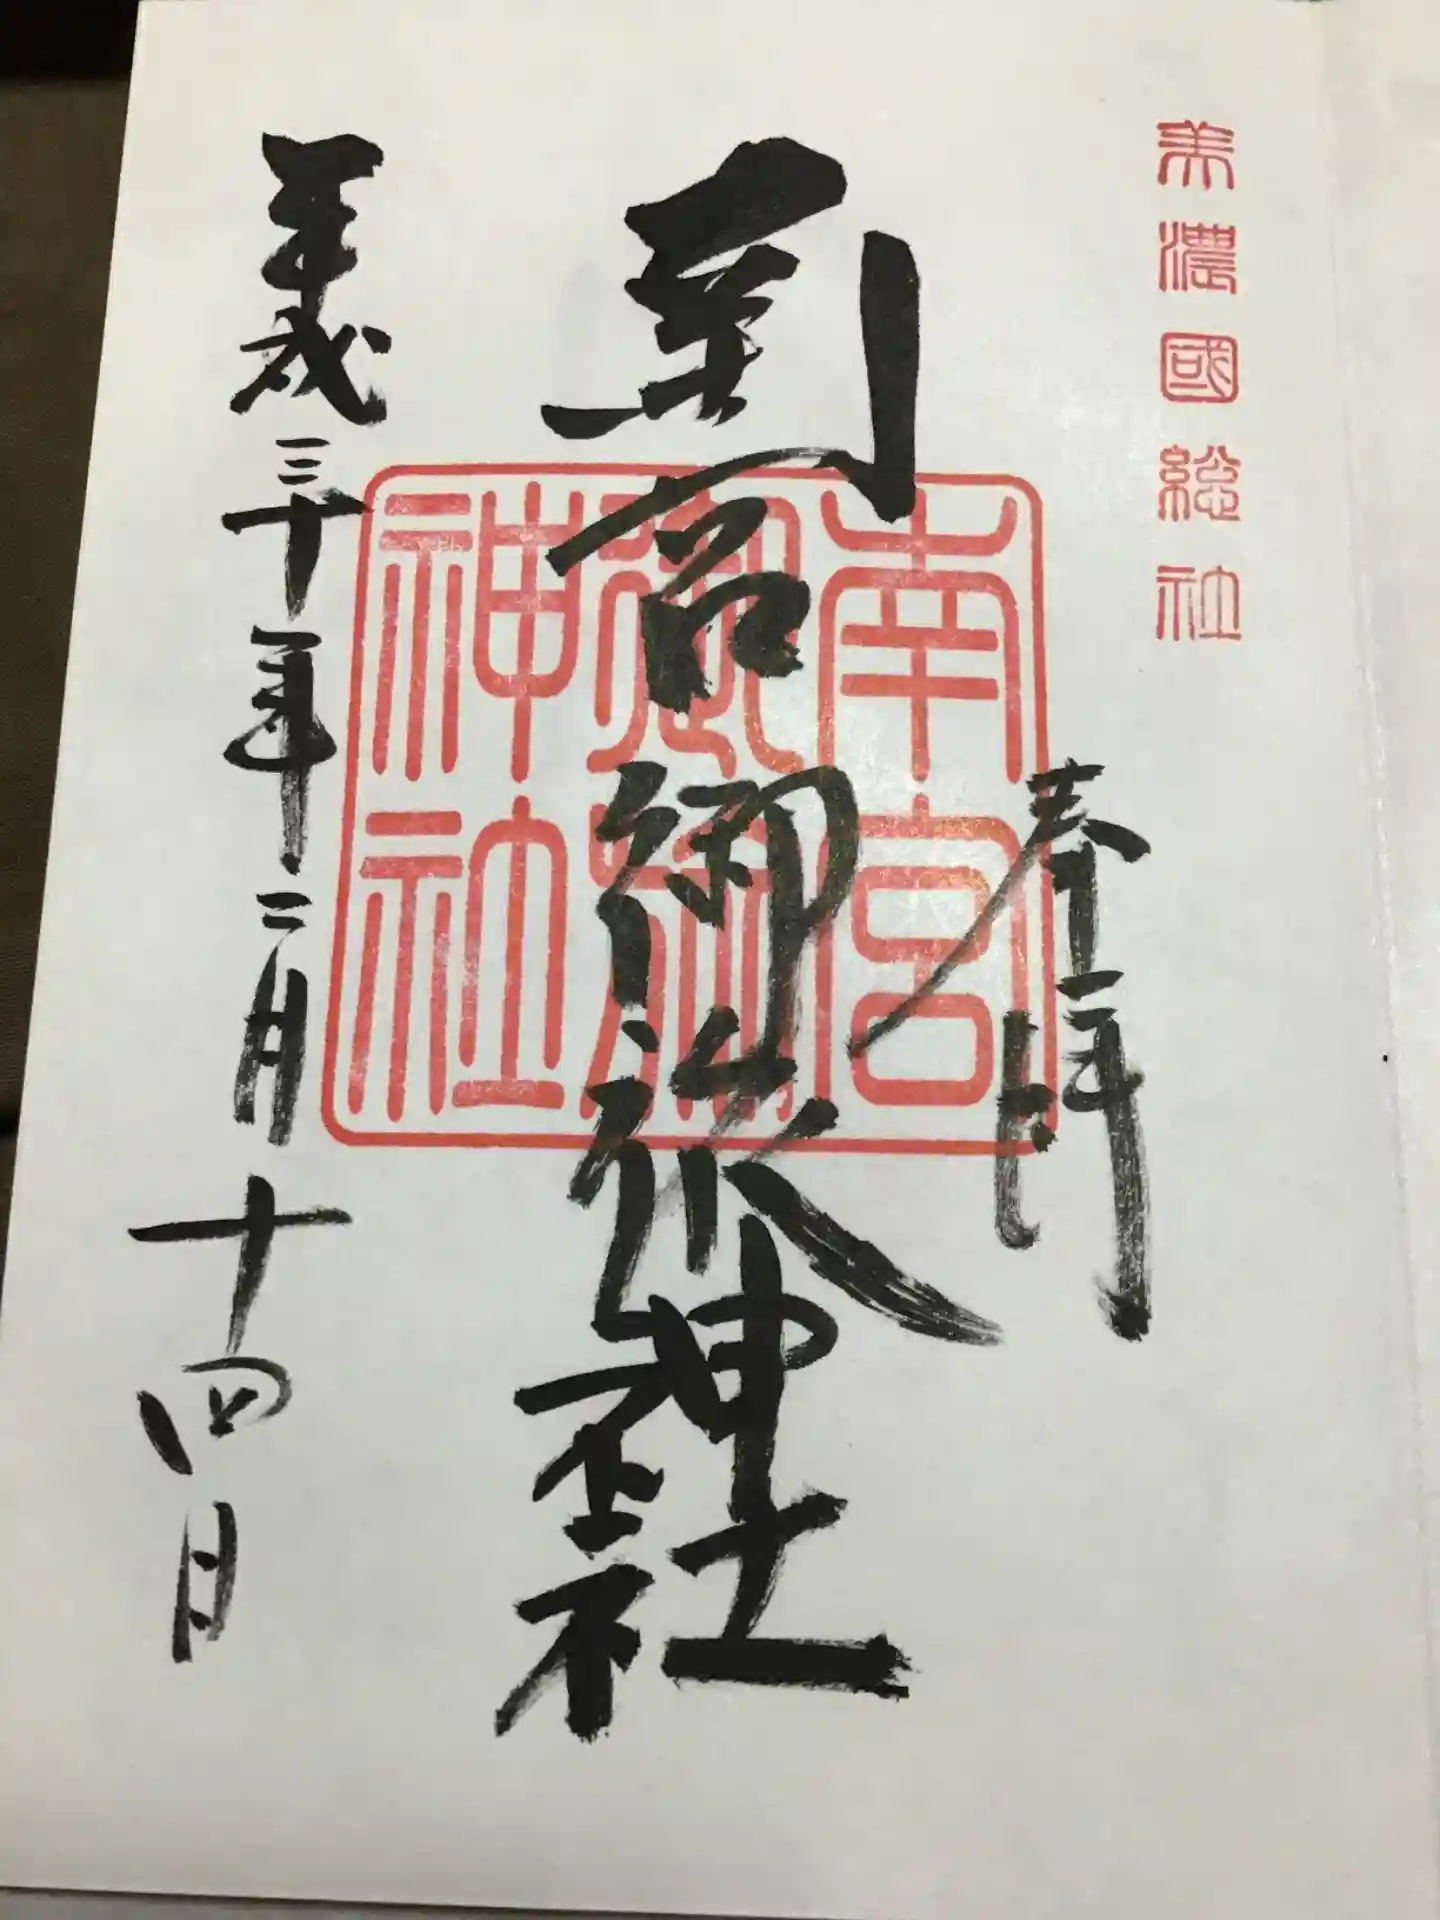 美濃國総社
奉拝
南宮御旅神社
南宮
御旅
神社
平成三十年二月十四日